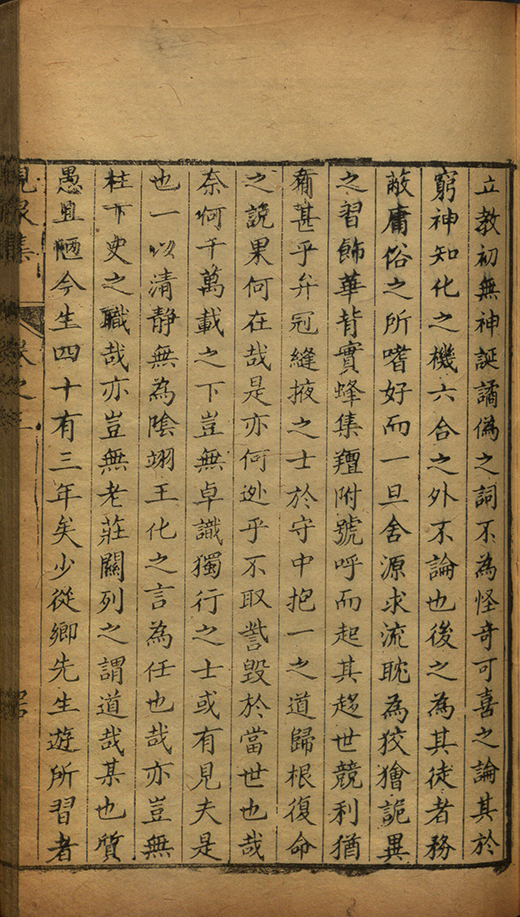 立教初無神誕譎偽之詞不為怪奇可喜之論其於
窮神知化之機六合之外不論也後之為其徒者務
蔽庸俗之所嗜好而一旦舍源求流耽為狡獪詭異
之習飾華背實蜂集羶附號呼而起其趍世競利猶
有甚乎弁冠縫掖之士於守中抱一之道歸根復命
之說果何在哉是亦何迯乎不取訾毀於當世也哉
奈何千萬載之下豈無卓識獨行之士或有見夫是
也一以清靜無為陰翊王化之言為任也哉亦豈無
柱下史之職哉亦豈無老莊關列之謂道哉某也質
愚且陋今生四十有三年矣少從鄉先生遊所習者
峴泉集 卷之二